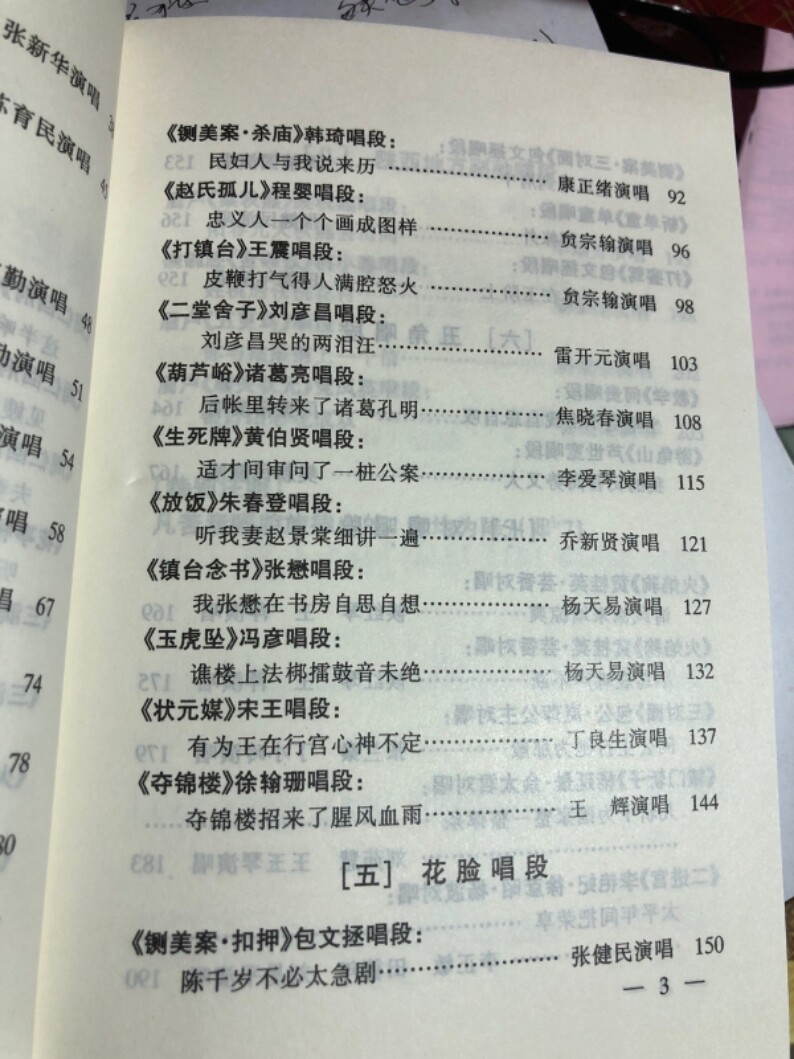 张新华演唱
育民演唱
勤演唱 48
演唱 51
演唱 54
唱 58
唱 67
74
78
80
《铡美案·杀庙》韩琦唱段：
民妇人与我说来历…………………康正绪演唱 92
《赵氏孤儿》程婴唱段：
忠义人一个个画成图样……………贠宗翰演唱 96
《打镇台》王震唱段：
皮鞭打气得人满腔怒火……………贠宗翰演唱 98
《二堂舍子》刘彦昌唱段：
刘彦昌哭的两泪汪…………………雷开元演唱 103
《葫芦峪》诸葛亮唱段：
后帐里转来了诸葛孔明……………焦晓春演唱 108
《生死牌》黄伯贤唱段：
适才间审问了一桩公案……………李爱琴演唱 115
《放饭》朱春登唱段：
听我妻赵景棠细讲一遍……………乔新贤演唱 121
《镇台念书》张懋唱段：
我张懋在书房自思自想……………杨天易演唱 127
《玉虎坠》冯彦唱段：
谯楼上法梆擂鼓音未绝……………杨天易演唱 132
《状元媒》宋王唱段：
有为王在行宫心神不定……………丁良生演唱 137
《夺锦楼》徐翰珊唱段：
夺锦楼招来了腥风血雨……………王　辉演唱 144
［五］ 花脸唱段
《铡美案·扣押》包文拯唱段：
陈千岁不必太急剧…………………张健民演唱 150
— 3 —